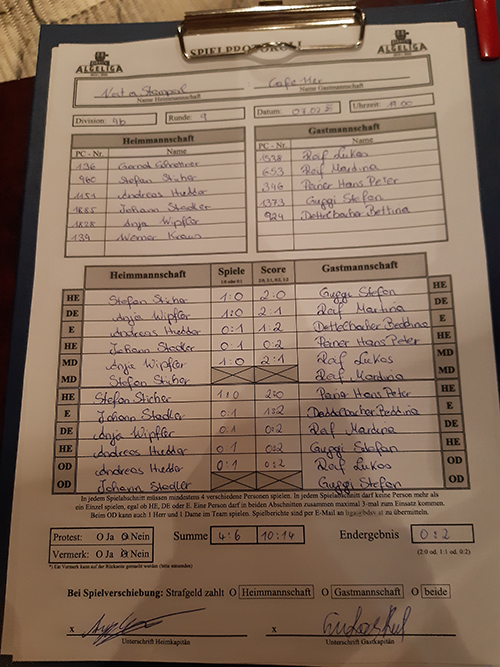 ALGELIGA SPIELPROTOKOLL ALGELIGA
Cafe Her
Name Heimmannschaft Name Gastmannschaft
Division: 4b Runde: 9 Datum: Uhrzeit: 19.00
Heimmannschaft Gastmannschaft
PC - Nr. Name PC - Nr. Name
136 1538 Raif Lukas
960 Stefan Sticher 653 Raif Martina
1151 Andreas Hudder 346 Paner Hans Peter
1885 Johann Stadler 1373 Guggi Stefan
1828 Anja Wipfler 924 Dettelbacher Bettina
139 Werner Kraus
Heimmannschaft Spiele Score Gastmannschaft
HE Stefan Sticher 1:0 2:0 Guggi Stefan HE
DE Anja Wipfler 1:0 2:1 Raif Martina DE
E Andreas Hudder 0:1 1:2 Dettelbacher Bettina E
HE Johann Stadler 0:1 0:2 Paner Hans Peter HE
MD Anja Wipfler 1:0 2:1 Raif Lukas MD
MD Stefan Sticher Raif Martina MD
HE Stefan Sticher 1:0 2:0 Paner Hans Peter HE
E Johann Stadler 0:1 1:2 Bettina E
DE Anja Wipfler 0:1 0:2 Raif Martina DE
HE Andreas Hudder 0:1 0:2 Guggi Stefan HE
OD Andreas Hudder 0:1 0:2 Raif Lukas OD
OD Johann Stadler Guggi Stefan OD
In jedem Spielabschnitt müssen mindestens 4 verschiedene Personen spielen. In jedem Spielabschnitt darf keine Person mehr als
ein Einzel spielen, egal ob HE, DE oder E. Eine Person darf in beiden Abschnitten zusammen maximal 3-mal zum Einsatz kommen.
Beim OD kann auch 1 Herr und 1 Dame im Team spielen. Spielberichte sind per E-Mail an liga@bdsv.at zu übermitteln.
Protest: O Ja O Nein Summe 4:6 10:14 Endergebnis 0:2
Vermerk: O Ja O Nein (2:0 od. 1:1 od. 0:2)
*) Ein Vermerk kann auf der Rückseite gemacht werden (bitte umwenden)
Bei Spielverschiebung: Strafgeld zahlt O Heimmannschaft O Gastmannschaft O beide
x x
Unterschrift Heimkapitän Unterschrift Gastkapitän